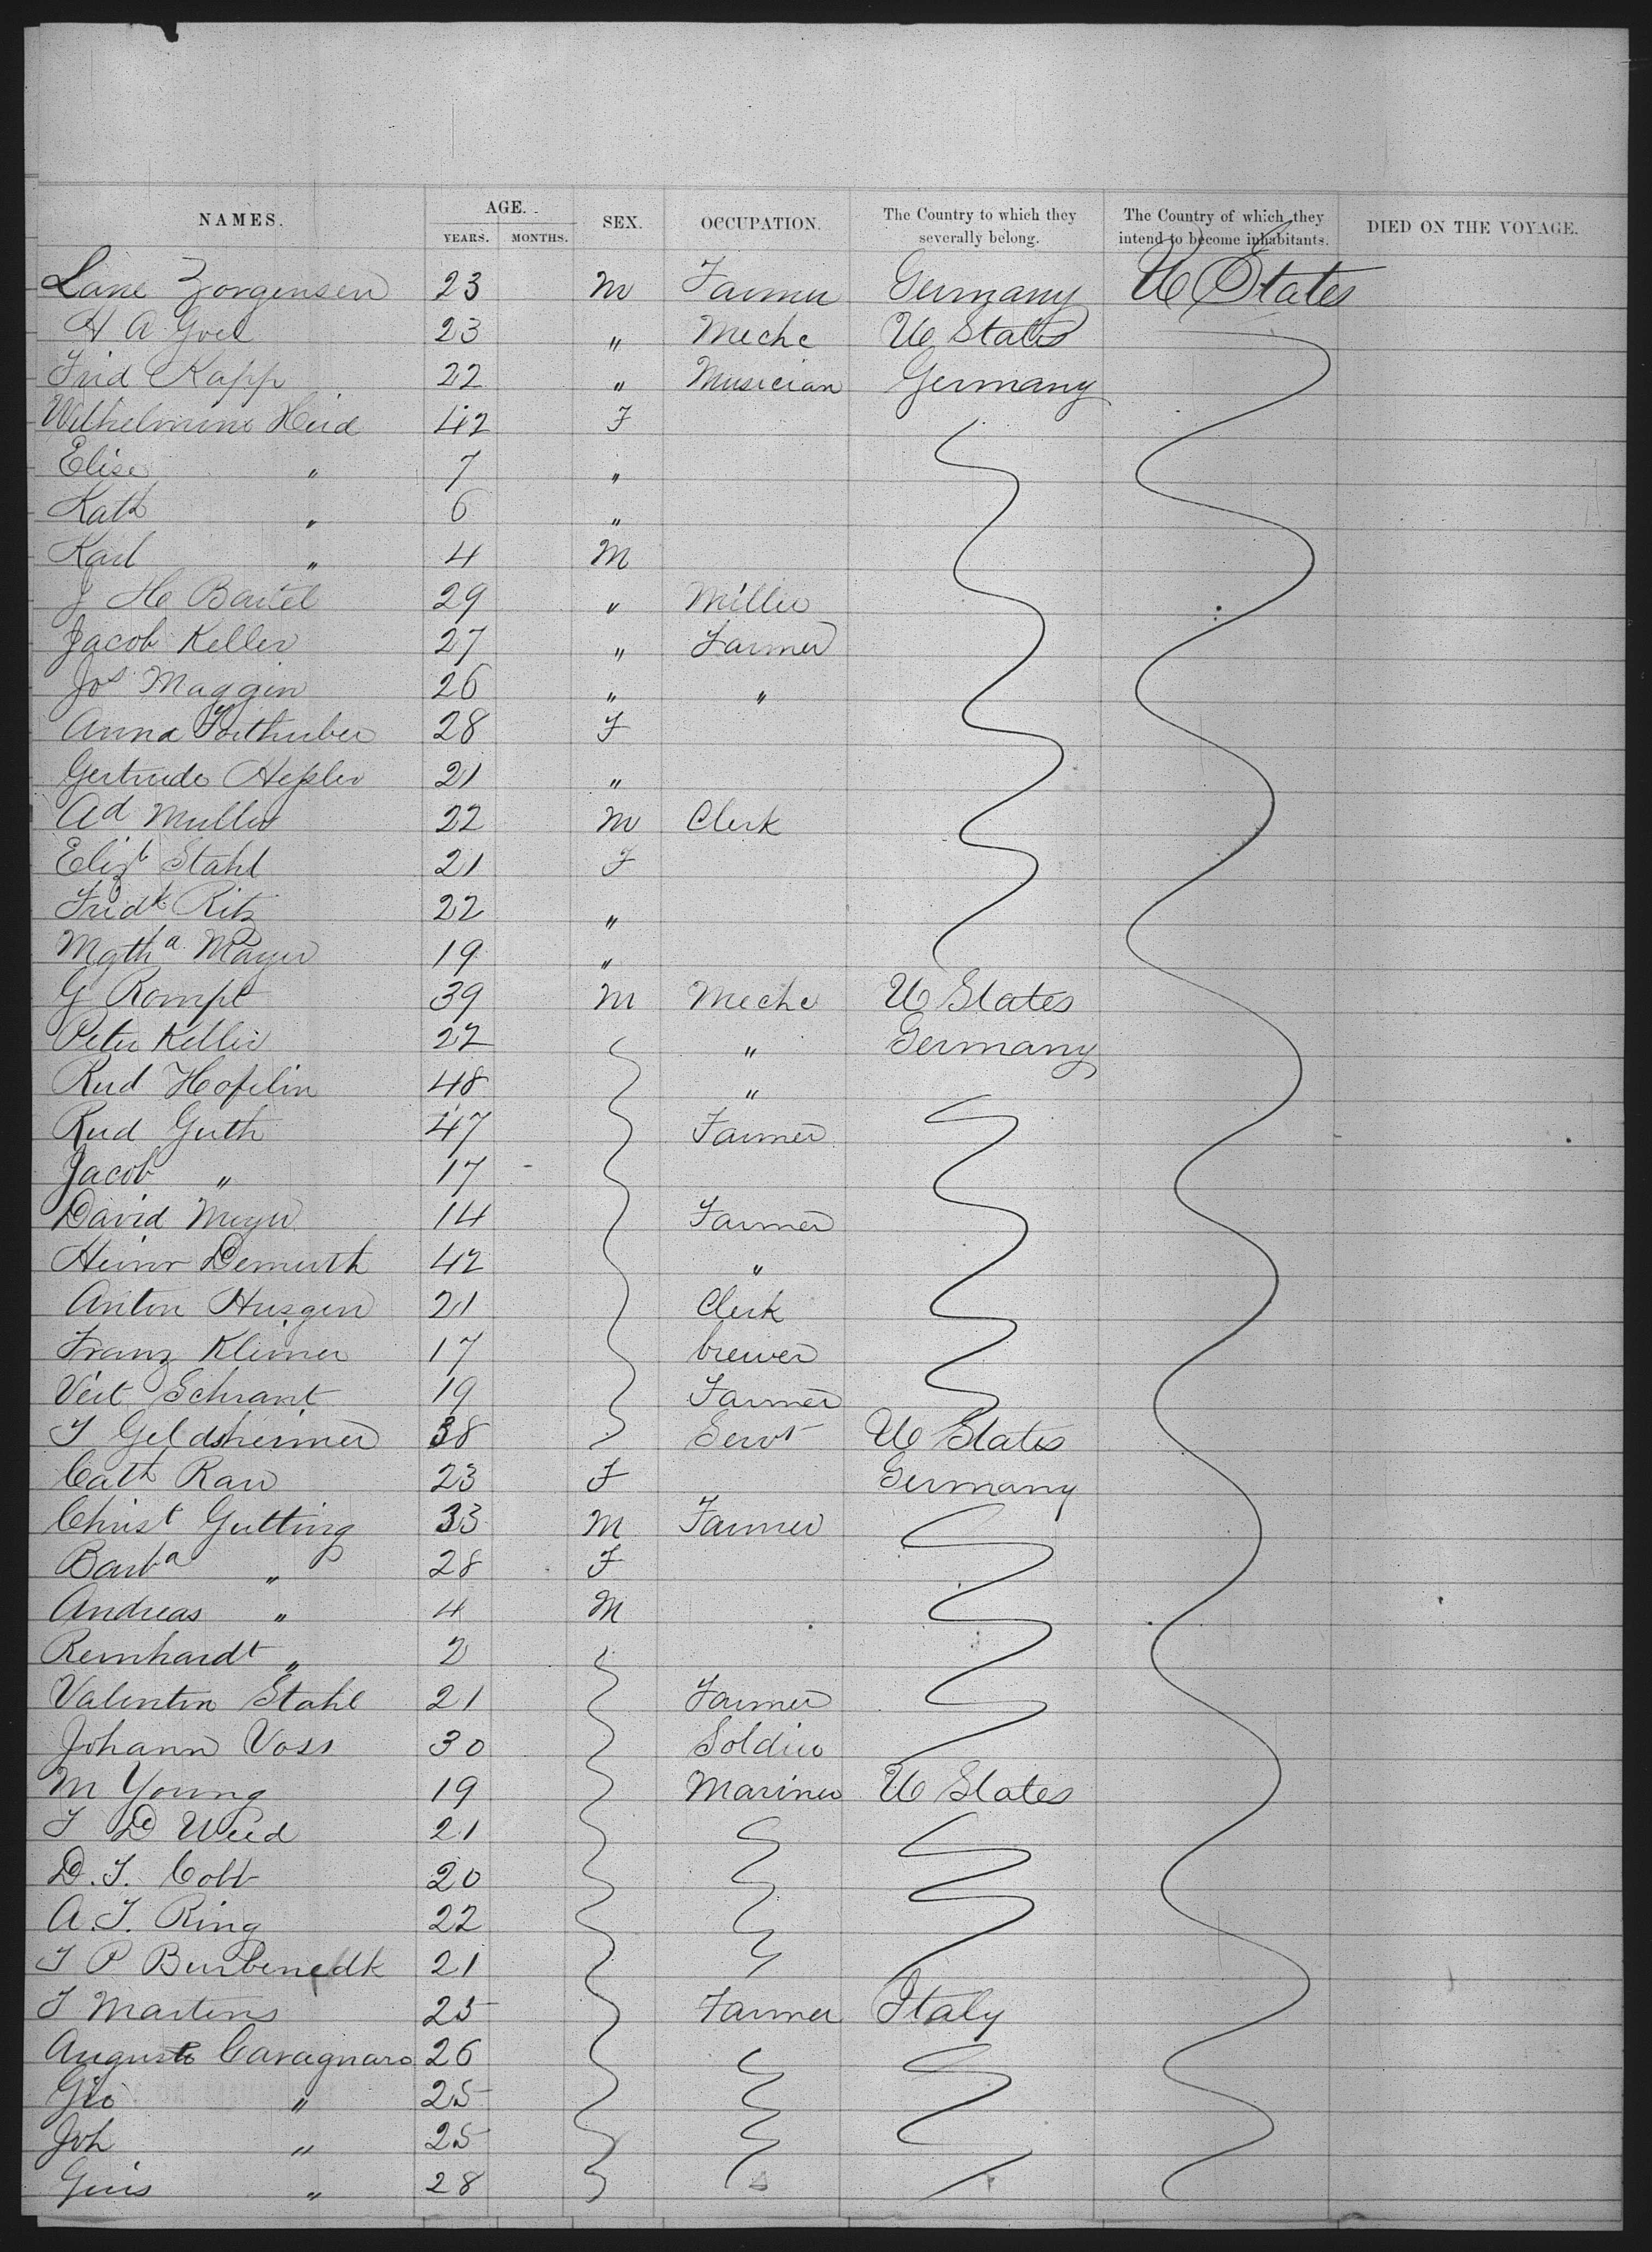 NAMES. AGE. SEX. OCCUPATION. The Country to which they severally belong. The Country of which they intend to become inhabitants. DIED ON THE VOYAGE.
YEARS. MONTHS.
Lane Jorgensen 23 M Farmer Germany U States
H A Goel 23 " Mechc U States
Fried Kapp 22 " Musician Germany
Wilhelmine Heid 42 F
Elise " 7 "
Kath " 6 "
Karl " 4 M
J H Bartel 29 " Miller
Jacob Keller 27 " Farmer
Jos Maggin 26 " "
Anna 28 F
Gertrude Hepler 21 "
Ad Muller 22 M Clerk
Elizb Stahl 21 F
Fridk Ritz 22 "
Mgtha Mayer 19 "
G Rompf 39 M Mechc U States
Peter Keller 22 " Germany
Rud Hofelin 48 "
Rud Guth 47 Farmer
Jacob " 17
David Meyer 14 Farmer
Heinr Demuth 42 "
Anton Husgen 21 Clerk
Franz Klemer 17 brewer
Veit Schrant 19 Farmer
I Geldsheimer 38 Servt U States
Cath Rau 23 F Germany
Christ Gutting 33 M Farmer
Barba " 28 F
Andreas " 4 M
Reinhardt " 2
Valentin Stahl 21 Farmer
Johann Voss 30 Soldier
M Young 19 Mariner U States
T D Weed 21
D. T. Colt 20
A. T. Ring 22
T P 21
T Martens 25 Farmer Italy
August Cavagnaro 26
Gio " 25
Joh " 25
Guis " 28